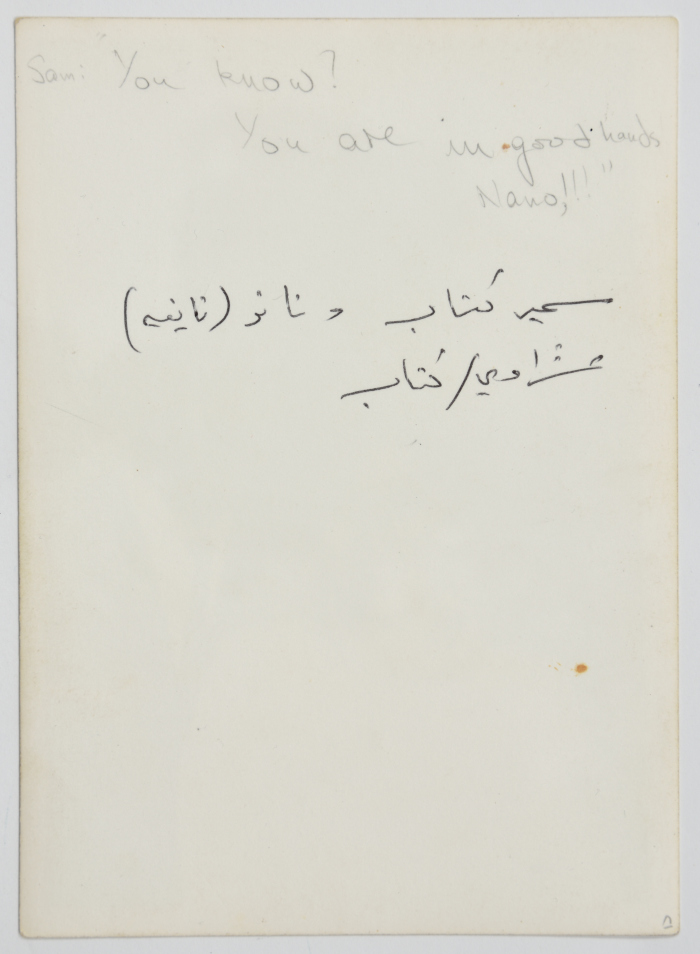 Sami: "You know?
You are in good hands
Nano,!!!"
سمير كتاب و نانو (نايفه)
شزاوي/كتاب